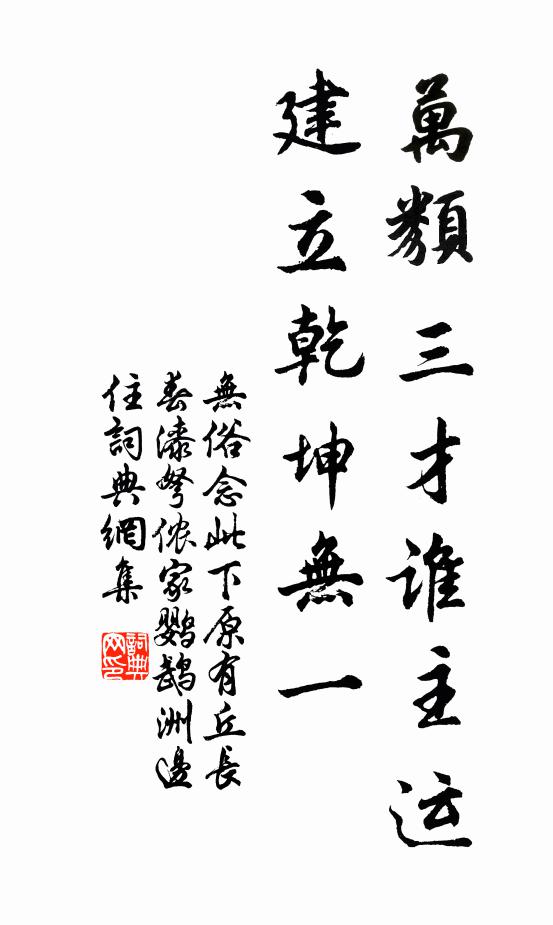 萬類三才誰主运
建立乾坤無一
無俗念此下原有丘長
春漆弩侬家鹦鹉洲邊
住詞典網集
詞典网印